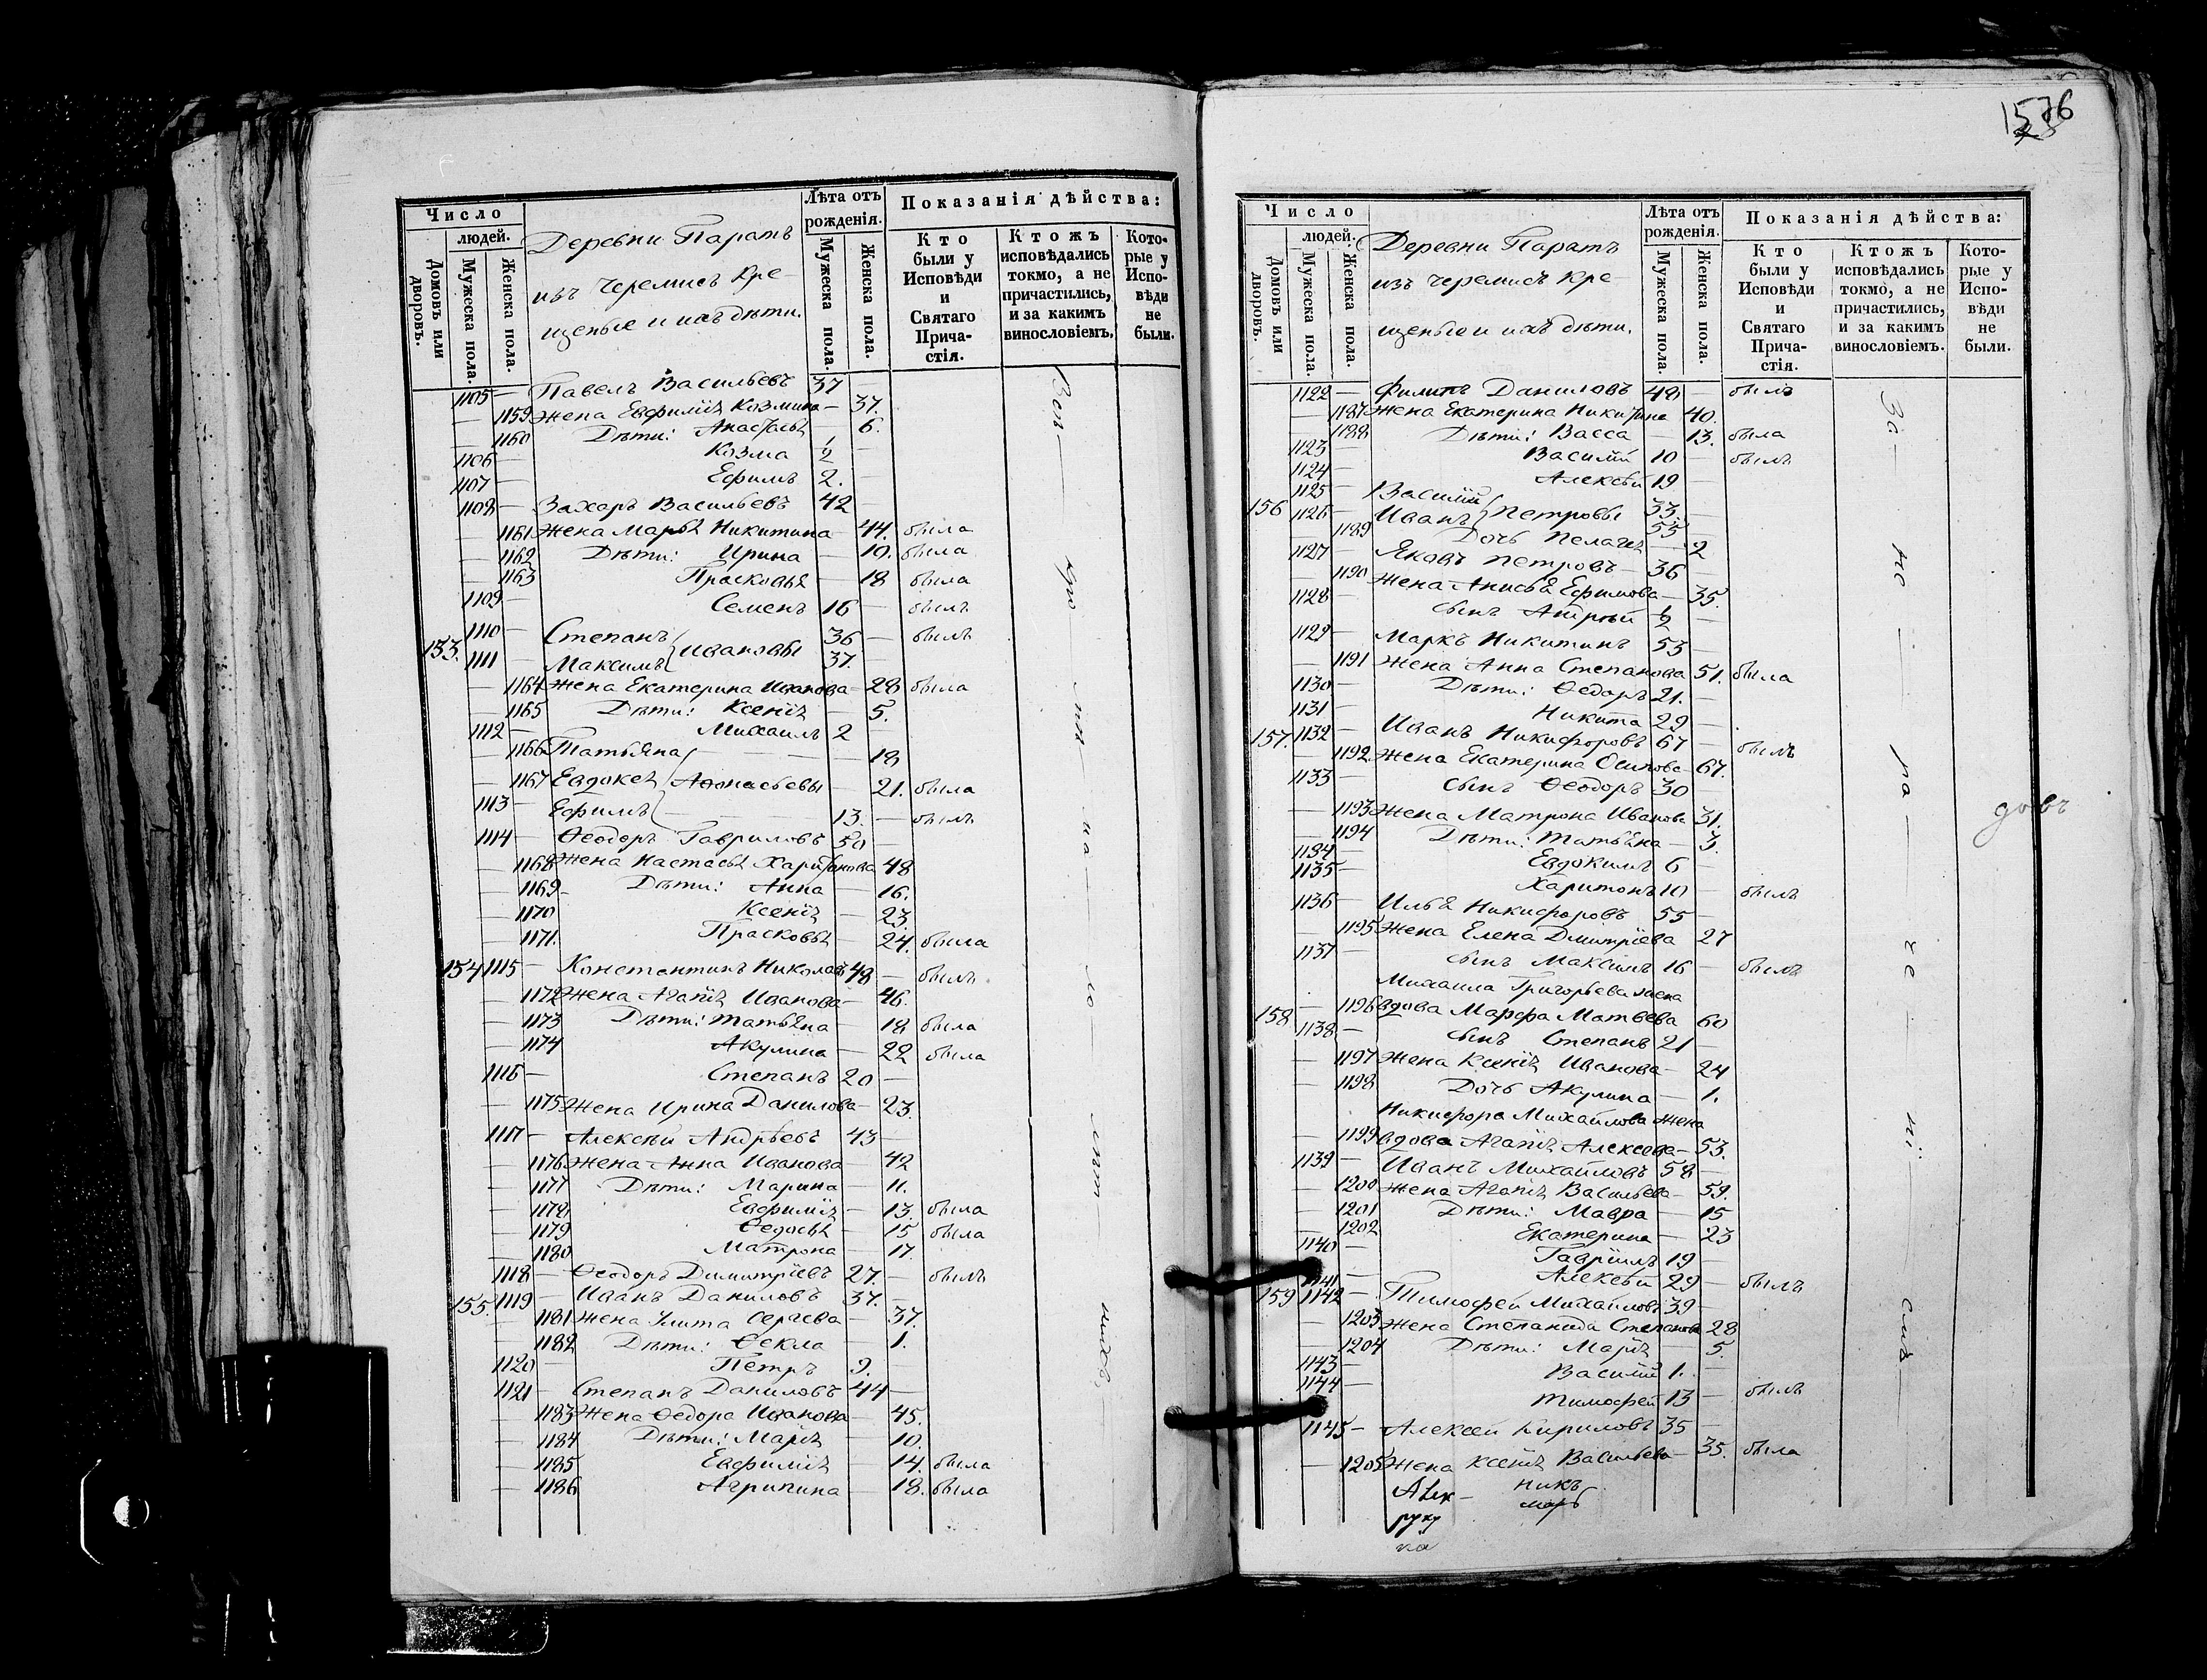 Число
людей.
Домовъ или дворовъ.
Мужеска пола.
Женска пола.
Деревни Паратъ
изъ черемисъ кре-
щеные и ихъ дѣти.
Лѣта отъ рожденія.
Мужеска пола.
Женска пола.
Показанія дѣйства:
Кто были у Исповѣди и Святаго Прича-стія.
Ктожъ исповѣдались токмо, а не причастились, и за какимъ винословіемъ.
Кото-рые у Испо-вѣди не были.
1105 — Павелъ Васильевъ 37 —
— 1159 Жена Евфимія Козмина — 37.
— 1160 Дѣти: Анастасья — 6.
1106 — Козма —
1107 — Ефимъ 2. —
1108 — Захаръ Васильевъ 42 —
— 1161 Жена Марья Никитина — 44. была
— 1162 Дѣти: Ирина — 10. была
— 1163 Прасковья — 18 была
1109 — Семенъ 16 — былъ
1110 — Степанъ 36 — былъ
153. 1111 — Максимъ Ивановы 37. —
— 1164 Жена Екатерина Иванова — 28 была
— 1165 Дѣти: Ксенія — 5.
1112 — Михаилъ 2 —
— 1166 Татьяна — 18
— 1167 Евдокея Афонасьевы — 21. была
1113 — Ефимъ 13. — былъ
1114 — Ѳеодоръ Гавриловъ 50 —
— 1168 Жена Настасья Харитонова 48
— 1169 Дѣти: Анна — 16.
— 1170 Ксенія — 23.
— 1171. Прасковья — 24. была
154 1115 — Константинъ Николаевъ 48 — былъ
— 1172 Жена Агапія Иванова — 46.
— 1173 Дѣти: Татьяна — 18 была
— 1174 Акулина — 22 была
1116 — Степанъ 20 —
— 1175 Жена Ирина Данилова — 23.
1117 — Алексѣй Андрѣевъ 43 —
— 1176 Жена Анна Иванова — 42
— 1177 Дѣти: Марина — 11.
— 1178 Евфимія — 13. была
— 1179 Ѳедосья — 15 была
— 1180 Матрона — 17.
1118 — Ѳеодоръ Димитріевъ 27. — былъ
155. 1119 — Иванъ Даниловъ 37. —
— 1181 Жена Улита Сергѣева — 37.
— 1182 Дѣти: Ѳекла — 1.
1120 — Петръ 9. —
1121 — Степанъ Даниловъ 44 —
— 1183 Жена Ѳедора Иванова — 45.
— 1184 Дѣти: Марія — 10.
— 1185 Евфимія — 14. была
— 1186 Агрипина — 18. была
1576
Число
людей.
Домовъ или дворовъ.
Мужеска пола.
Женска пола.
Деревни Паратъ
изъ черемисъ кре-
щеные и ихъ дѣти.
Лѣта отъ рожденія.
Мужеска пола.
Женска пола.
Показанія дѣйства:
Кто были у Исповѣди и Святаго Прича-стія.
Ктожъ исповѣдались токмо, а не причастились, и за какимъ винословіемъ.
Кото-рые у Испо-вѣди не были.
1122 — Филипъ Даниловъ 48 — былъ
— 1187 Жена Екатерина Никитина 40.
— 1188 Дѣти: Васса — 13. была
1123 — Василій 10 — былъ
1124 — Алексѣй 19 —
1125 — Василій
156 1126 — Иванъ Петровы 33. —
55 —
— 1189 Дочь Пелагея — 2
1127 — Яковъ Петровъ — 36
— 1190 Жена Анисья Ефимова — 35.
1128 — сынъ —
1129 — Маркъ Никитинъ 53 —
— 1191 Жена Анна Степанова 51. была
1130 — Дѣти: Ѳедоръ 21. —
1131 — Никита 29 —
157. 1132 — Иванъ Никифоровъ 67 — былъ
— 1192. Жена Екатерина Осипова — 67.
1133 — сынъ Ѳеодоръ 30 —
— 1193 Жена Матрона Иванова 31.
— 1194 Дѣти: Татьяна — 3.
1134 — Евдокимъ 6 —
1135 — Харитонъ 10 — былъ
1136 — Илья Никифоровъ 55 —
— 1195 Жена Елена Дмитріева 27
1137 — сынъ Максимъ 16 — былъ
Михаила Григорьева жена
158 — 1196 вдова Марфа Матвѣева 60
1138 — сынъ Степанъ 21 —
— 1197 Жена Ксенія Иванова — 24
— 1198 Дочь Акулина — 1.
Никифора Михайлова жена
— 1199 вдова Агапія Алексѣева — 53.
1139 — Иванъ Михайловъ 58 —
— 1200 Жена Агапія Васильева — 59.
— 1201 Дѣти: Мавра — 15
— 1202 Екатерина — 23
1140 — Гавріилъ 19 —
1141 — Алексѣй 29 — былъ
159 1142 — Тимофей Михайловъ 39 —
— 1203 Жена Степанида Степанова 28
— 1204 Дѣти: Марія — 5.
1143 — Василій 1. —
1144 — Тимофей 13 — былъ
1145 — Алексѣй Кириловъ 35 —
— 1205 Жена Ксенія Васильева — 35. была
никъ
руку